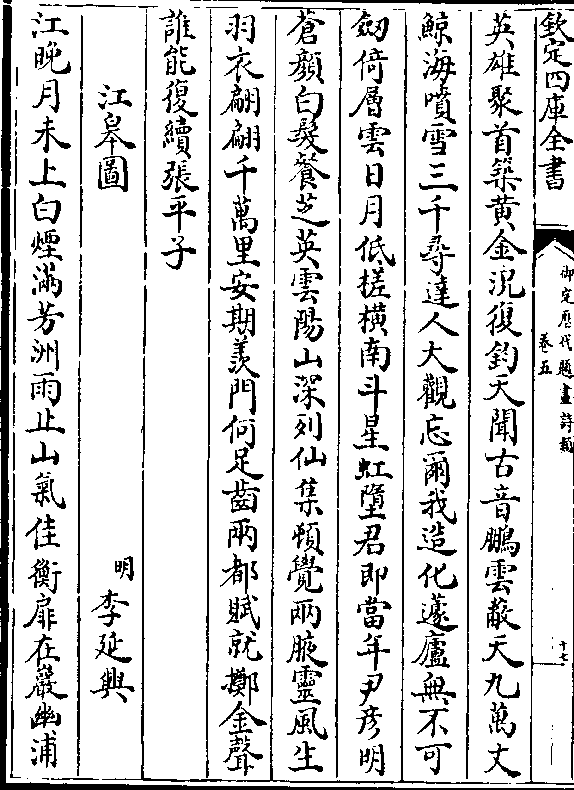 欽定四庫全書
御定歷代題畫詩類
卷五
十七
英雄聚首築黄金況復鈞天聞古音鵬雲蔽天九萬丈
鯨海噴雪三千尋達人大觀忘爾我造化蘧廬無不可
劒倚層雲日月低槎橫南斗星虹墮君即當年尹彦明
蒼顔白髮餐芝英雲陽山深列仙集頓覺兩腋靈風生
羽衣翩翩千萬里安期羡門何足齒兩都賦就擲金聲
誰能復續張平子
江臯圖
明李延興
江晚月未上白煙滿芳洲雨止山氣佳衡扉在巖幽浦